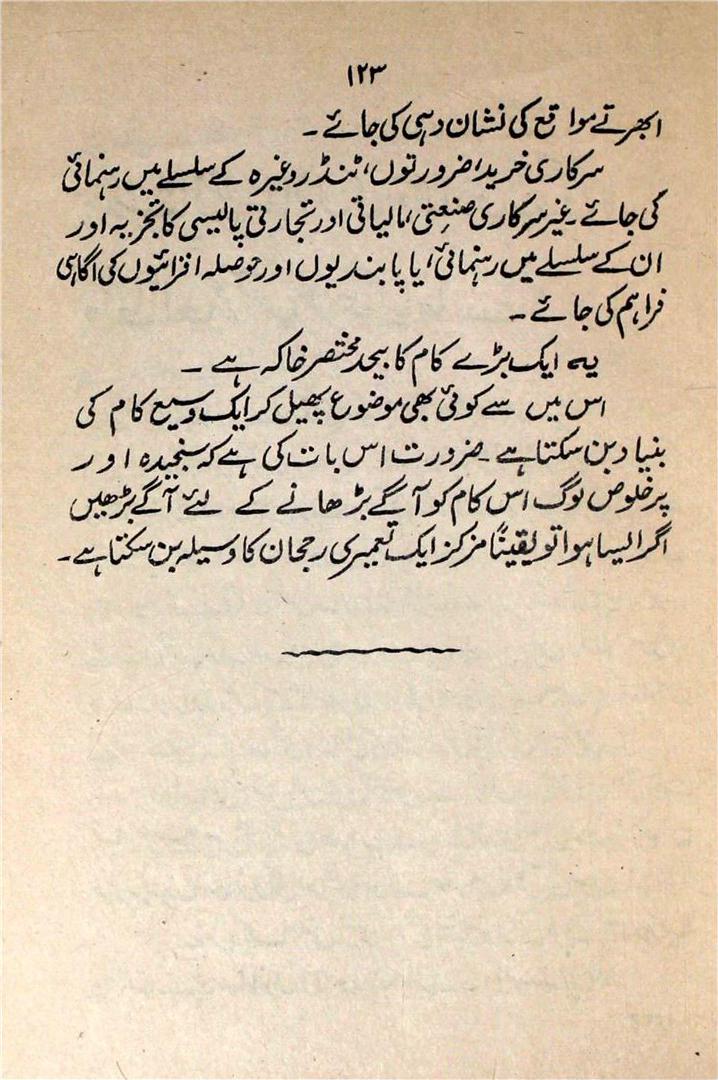 ۱۲۳
ابھرتے مواقع کی نشان دہی کی جائے ۔
سرکاری خرید، ضرورتوں، ٹنڈر وغیرہ کے سلسلے میں رہنمائی
کی جائے ۔ غیر سرکاری صنعتی، مالیاتی اور تجارتی پالیسی کا تجزیہ اور
ان کے سلسلے میں رہنمائی، یا پابندیوں اور حوصلہ افزائیوں کی آگاہی
فراہم کی جائے ۔
یہ ایک بڑے کام کا بیحد مختصر خاکہ ہے ۔
اس میں سے کوئی بھی موضوع پھیل کر ایک وسیع کام کی
بنیاد بن سکتا ہے ۔ ضرورت اس بات کی ہے کہ سنجیدہ اور
پرخلوص لوگ اس کام کو آگے بڑھانے کے لئے آگے بڑھیں
اگر ایسا ہوا تو یقیناً مرکز ایک تعمیری رجحان کا وسیلہ بن سکتا ہے ۔